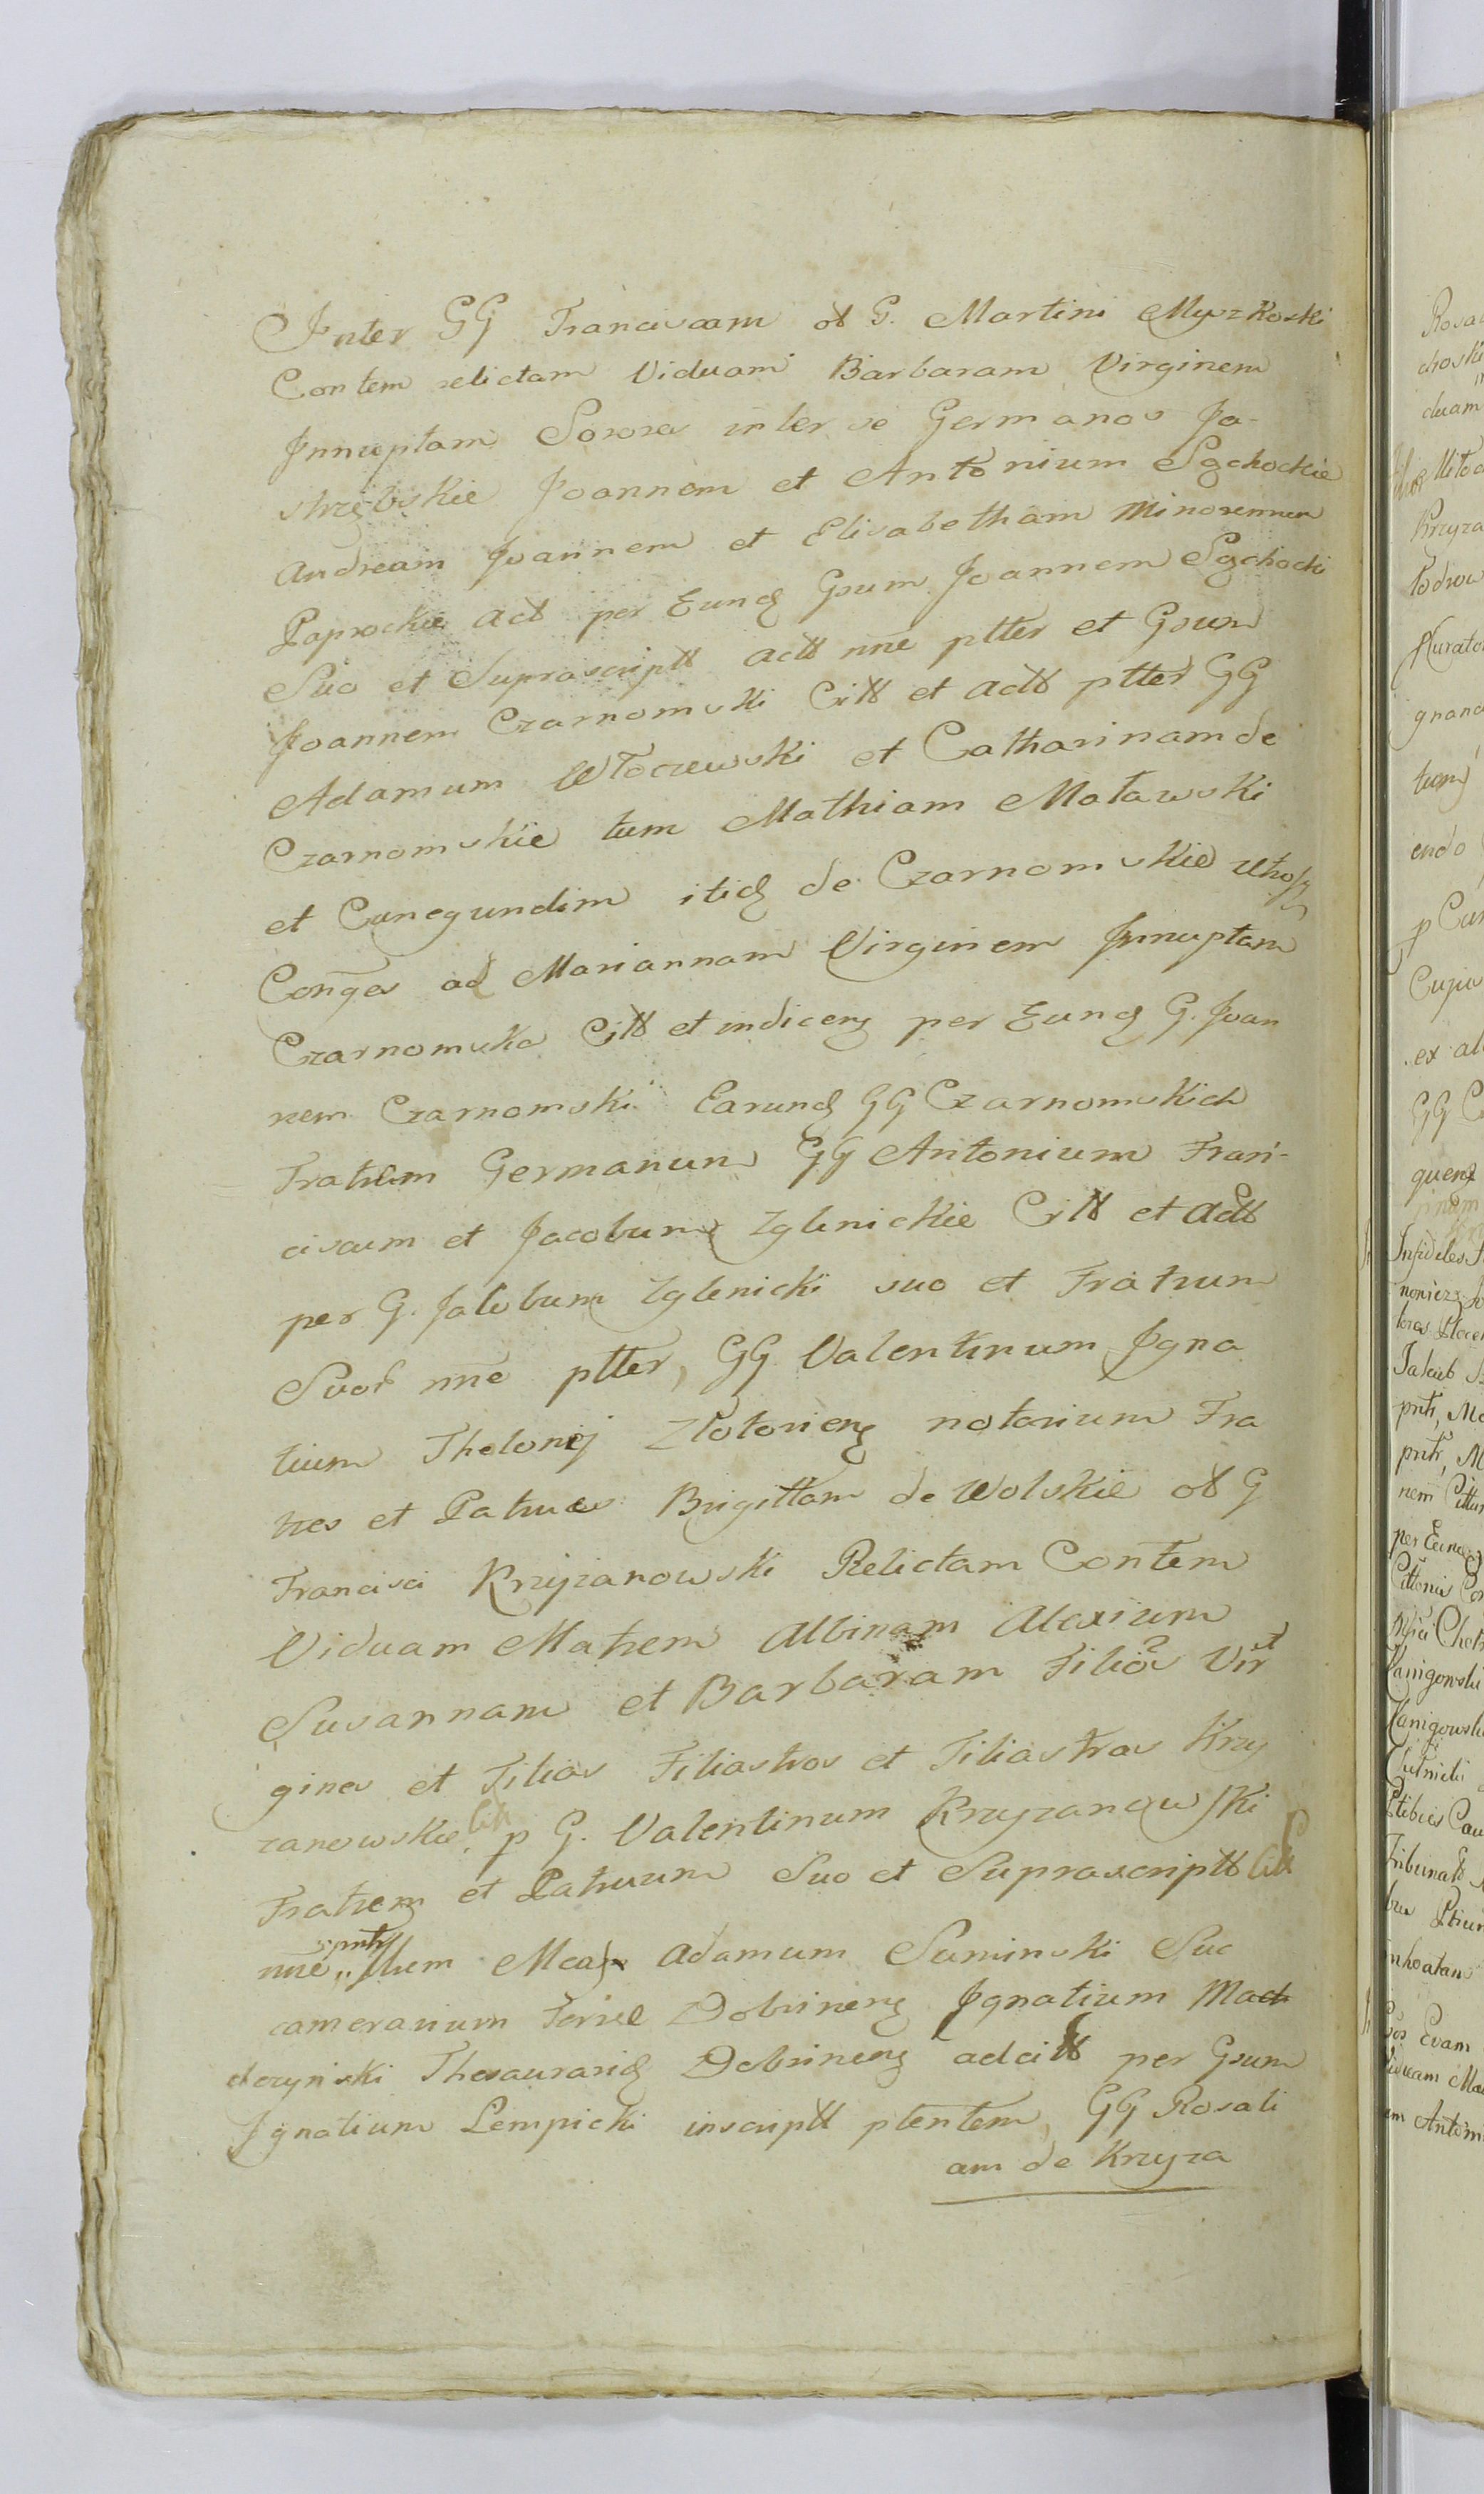 Inter GG Franciscam ot G. Martini Myszkoski
Contem relictam Viduam Barbaram Virginem
Innuptam Sorores inter se Germanos Ja-
strzębskie Joannem et Antonium Sgchockie
Andream Joannem et Elisabetham Minorennem
Paprockie act per Eunq Gsum Joannem Sgchocki
Suo et Suprascriptt actt nne ptter et Gsum
Joannem Czarnomski Citt et actt ptter GG
Adamum Wtoczewski et Catharinam de
Czarnomskie tum Mathiam Matawski
et Cunegundim itiq de Czarnomskie
Conges ad Mariannam Virginem Innuptam
Czarnomska Citt et indiceng per Eunq G. Joan
nem Czarnomski Earunq GG Czarnomskich
Fratrem Germanum GG Antonium Fran-
ciscum et Jacobum Zglenickie Citt et actt
per G. Jacobum Zglenicki suo et Fratrum
Suor nne ptter, GG Valentinum Igna
tium Thelonij Zlotorieng notarium Fra
tres et Patruos Brigittam de Wolskie ot G
Francisci Krzyzanowski Relictam Contem
Viduam Matrem Albinam Alexium
Susannam et Barbaram Filios Vir
gines et Filias Filiastros et Filiastras Krzy
zanowskie citt p G. Valentinum Krzyzanowski
Fratrem et Patruum Suo et Suprascriptt citt
nne pntr Illum Adamum Suminski Suc
camerarium Terrae Dobrineng Ignatium Mad
dczynski Thesaurariq Dobrineng adcitt per Gsum
Ignatium Lempicki inscriptt ptentem, GG Rosali
am de Krzyza

Rosa
choski
duam
Krzyza
Todrow
Kurato
grano
tum
endo
p Cu
Cujus
ex al
GG C
quenq
Infideles
Jakub
pntr, Ma
pntr, M
nem Cittu
per Eunq
Kanigowski
Kanigowski
Chutnicki
Tribunatt
inhoatam
Eos Evam
viduam Ma
am Antoni